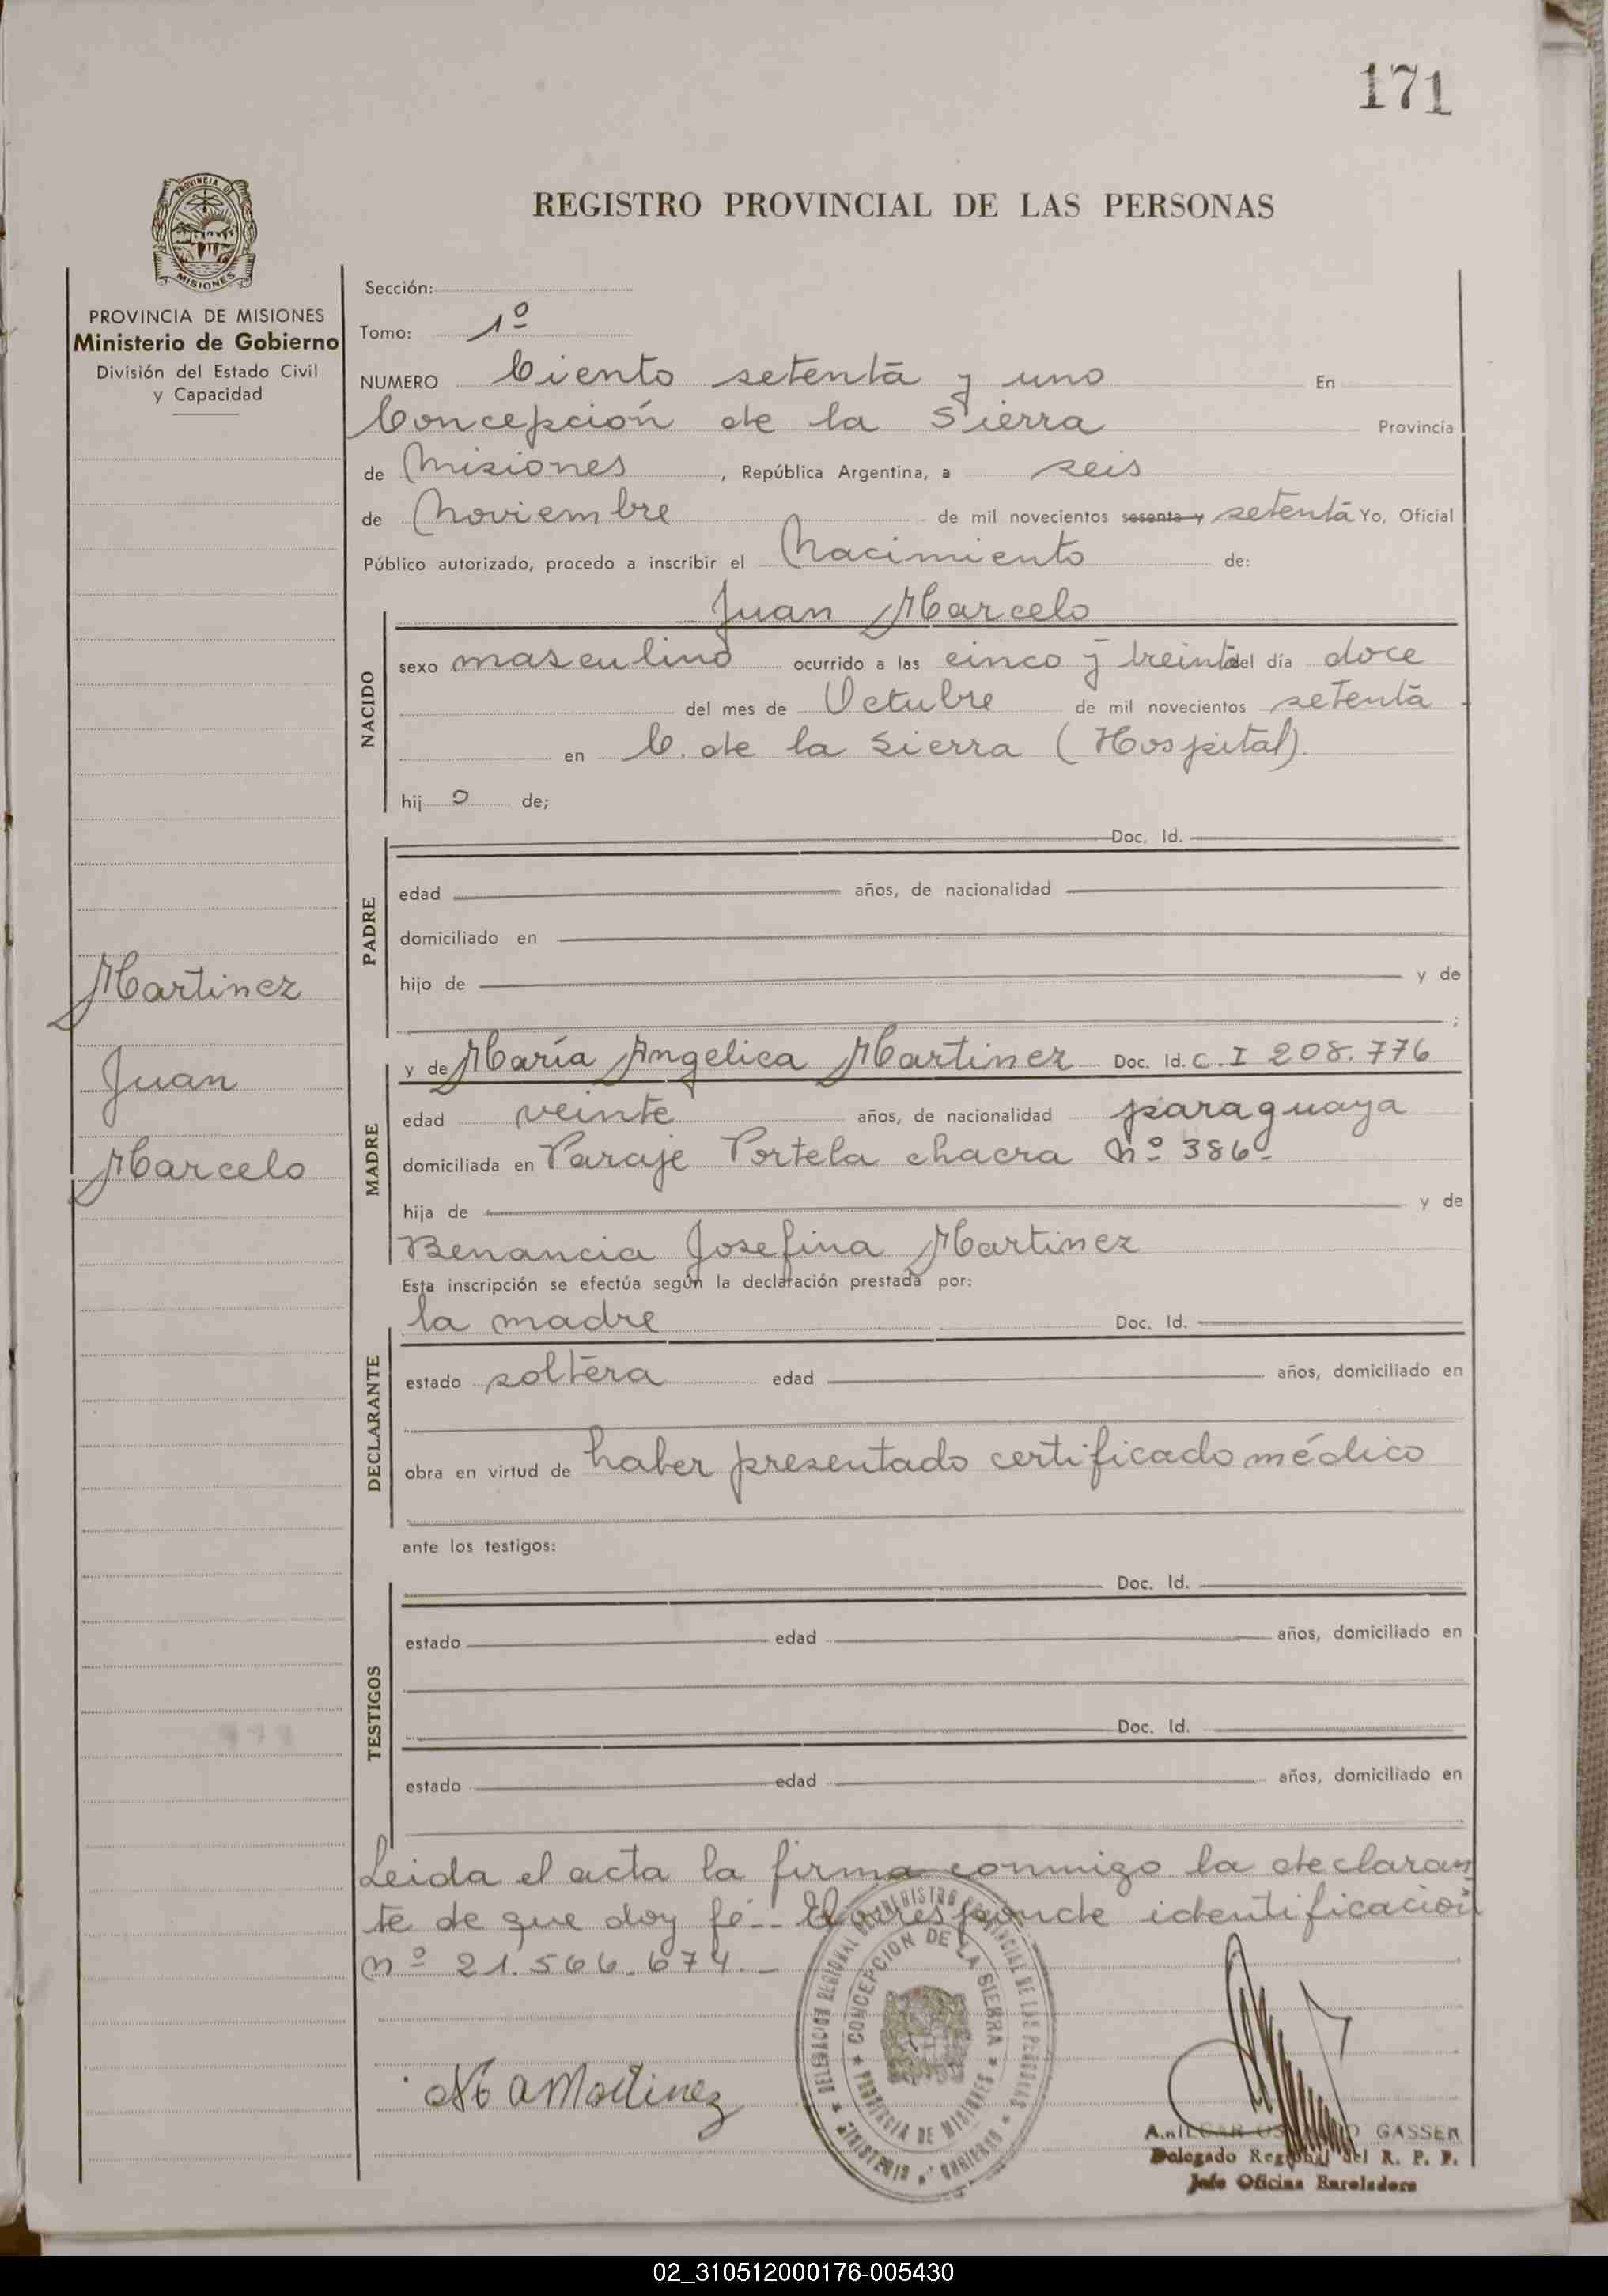 171
PROVINCIA DE
MISIONES
REGISTRO PROVINCIAL DE LAS PERSONAS
PROVINCIA DE MISIONES
Ministerio de Gobierno
División del Estado Civil
y Capacidad
Martinez
Juan
Marcelo
Sección:
Tomo: 1º
NUMERO Ciento setenta y uno En
Concepción de la Sierra Provincia
de Misiones, República Argentina, a seis
de Noviembre de mil novecientos sesenta y setenta Yo, Oficial
Público autorizado, procedo a inscribir el Nacimiento de:
NACIDO
Juan Marcelo
sexo masculino ocurrido a las cinco y treinta del día doce
del mes de Octubre de mil novecientos setenta
en C. de la Sierra (Hospital).
hij o de;
PADRE
Doc. Id.
edad años, de nacionalidad
domiciliado en
hijo de y de
;
MADRE
y de María Angelica Martinez Doc. Id. C. I 208.776
edad veinte años, de nacionalidad paraguaya
domiciliada en Paraje Portela chacra Nº 386-
hija de y de
Benancia Josefina Martinez
Esta inscripción se efectúa según la declaración prestada por:
DECLARANTE
la madre Doc. Id.
estado soltera edad años, domiciliado en
obra en virtud de haber presentado certificado médico
ante los testigos:
TESTIGOS
Doc. Id.
estado edad años, domiciliado en
Doc. Id.
estado edad años, domiciliado en
Leida el acta la firma conmigo la declaran
te de que doy fé.- Corresponde identificación
nº 21.566.674.-
DELEGACION REGIONAL DEL REGISTRO PROVINCIAL DE LAS PERSONAS
CONCEPCION DE LA SIERRA
PROVINCIA DE MISIONES
MINISTERIO DE GOBIERNO
Martinez
GASSER
Delegado Regional del R. P. P.
Jefe Oficina
02_310512000176-005430